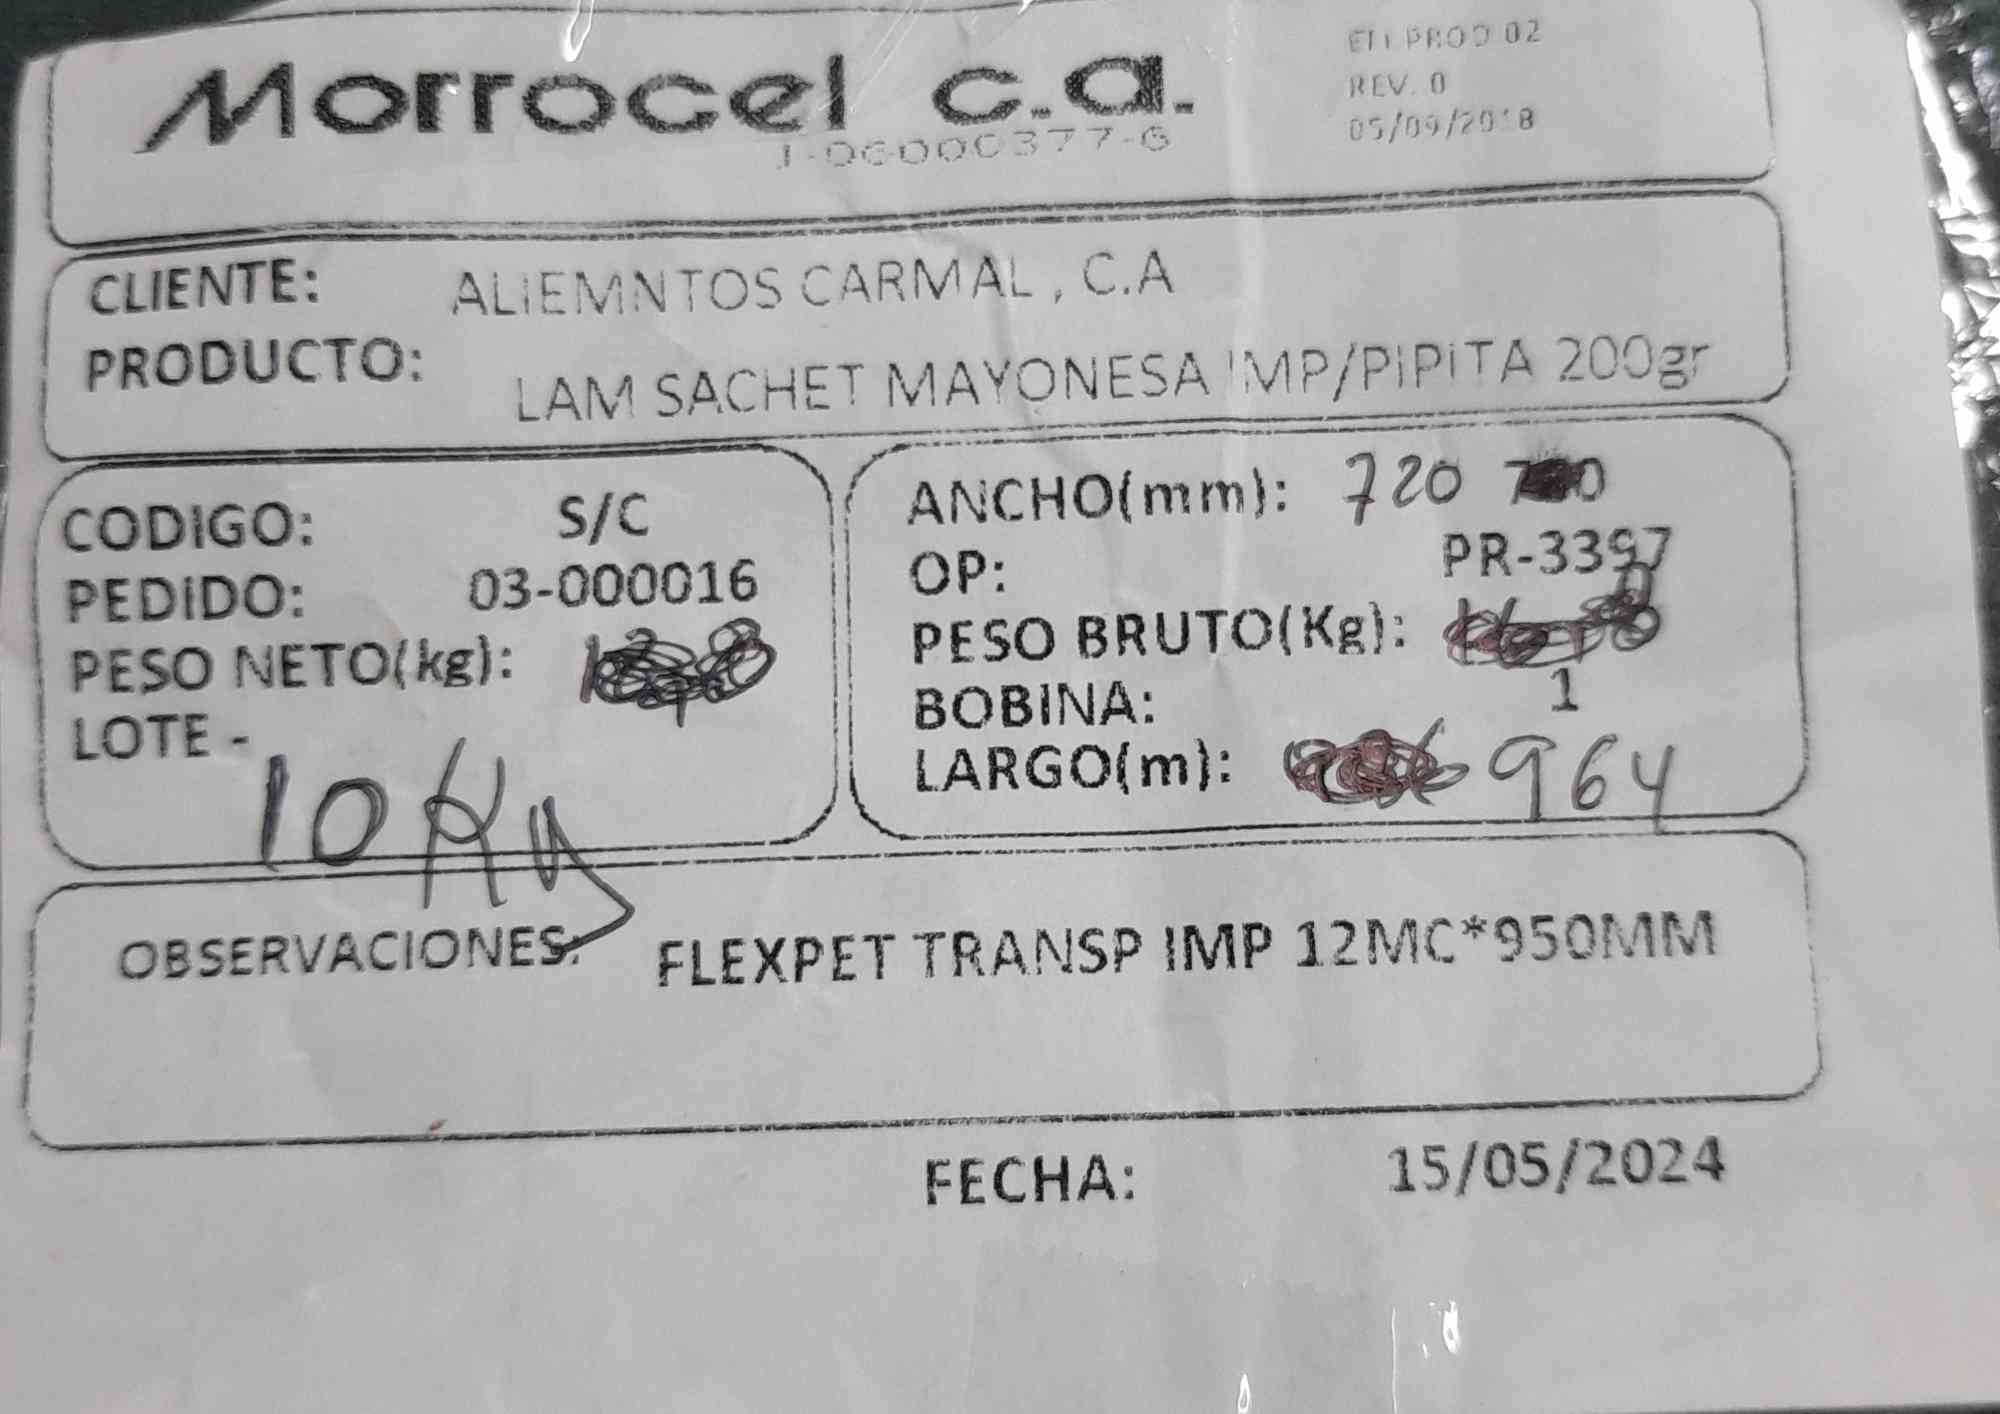 Morrocel c.a.
J-06000377-6
ETI PROD 02
REV. 0
05/09/2018
CLIENTE: ALIEMNTOS CARMAL, C.A
PRODUCTO: LAM SACHET MAYONESA IMP/PIPITA 200gr
CODIGO: S/C
PEDIDO: 03-000016
PESO NETO(kg):
LOTE -
10 Kg
ANCHO(mm): 720
OP: PR-3397
PESO BRUTO(Kg):
BOBINA: 1
LARGO(m): 964
OBSERVACIONES: FLEXPET TRANSP IMP 12MC*950MM
FECHA: 15/05/2024